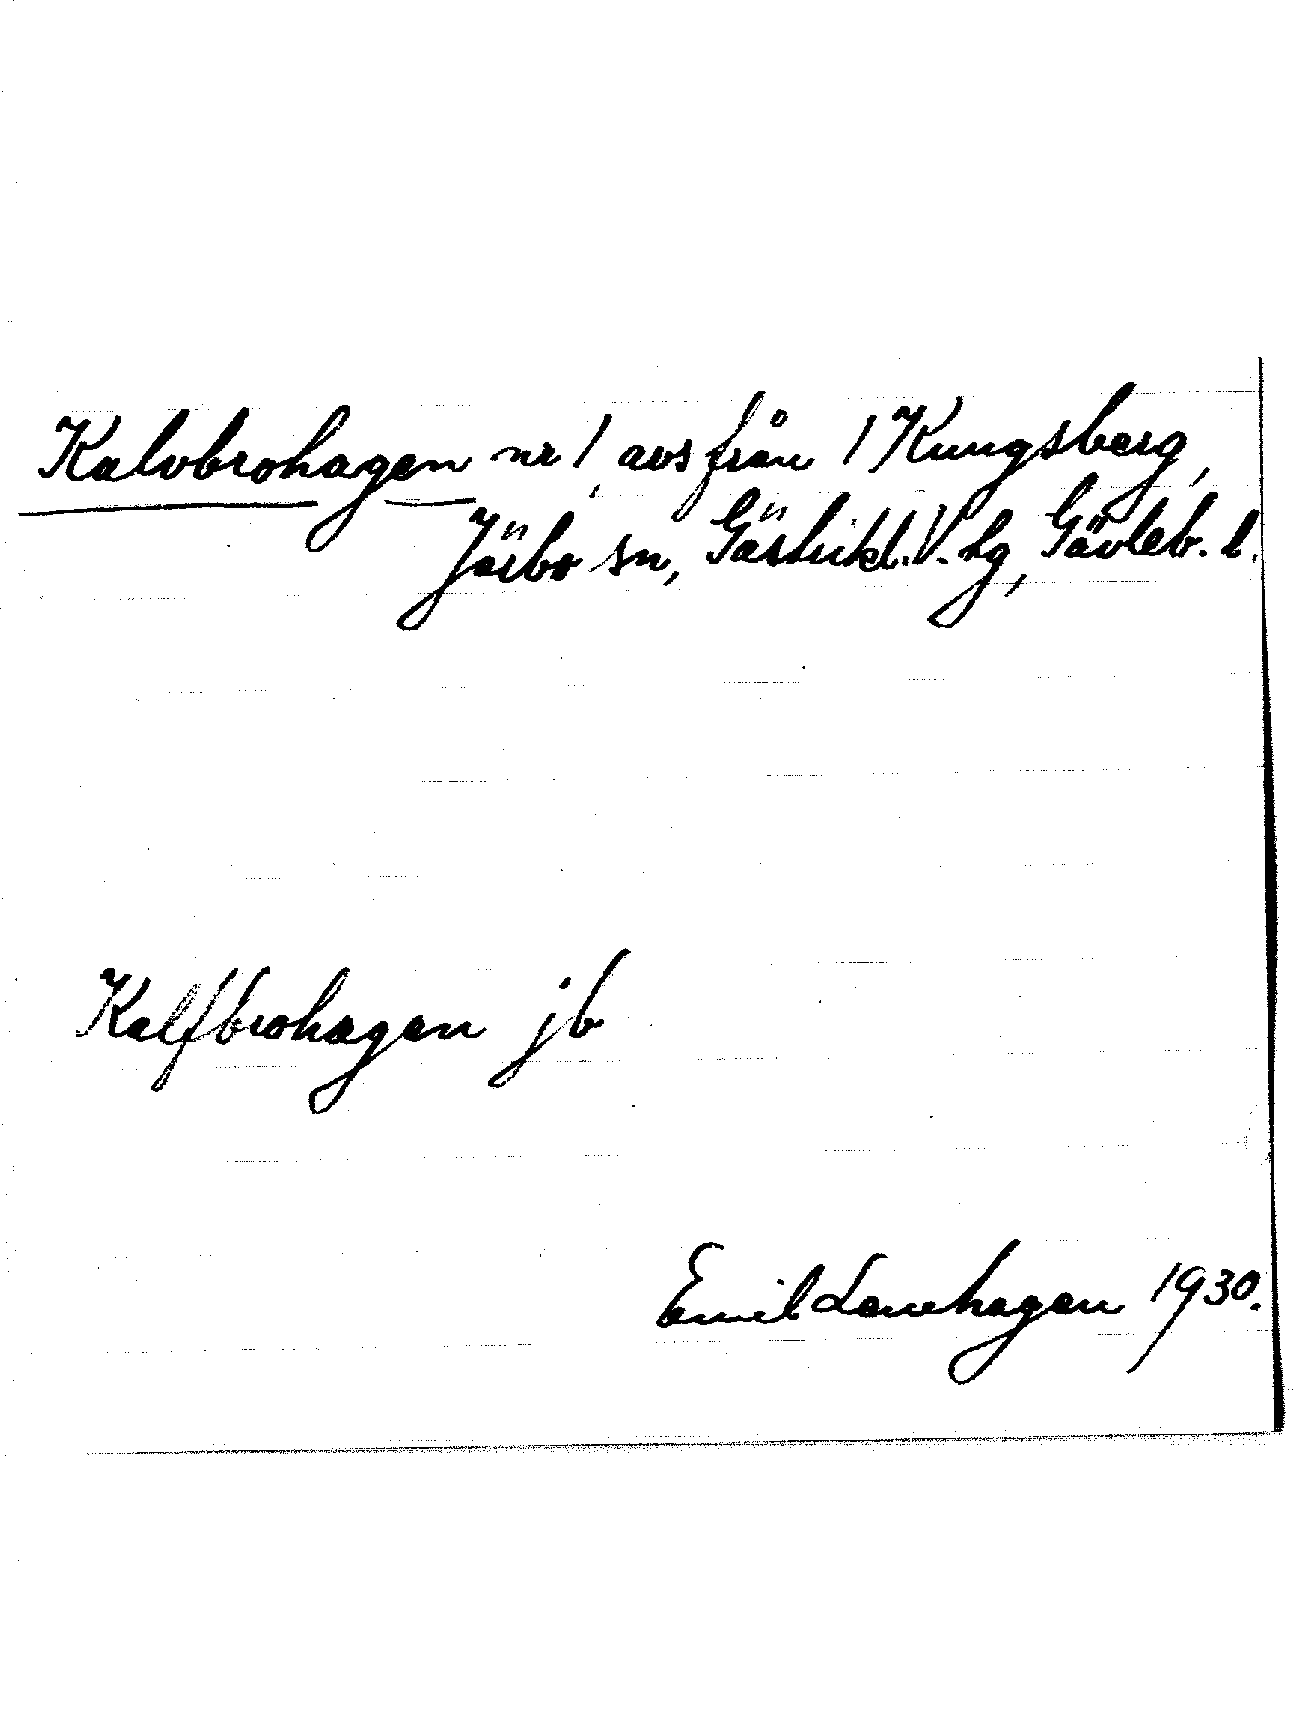 Kalvbrohagen nr 1, avs från 1 Kungsberg,
Järbo sn, Gästrikl. V. hg, Gävleb. l.
Kalfbrohagen jb
Emil Lanehagen 1930.